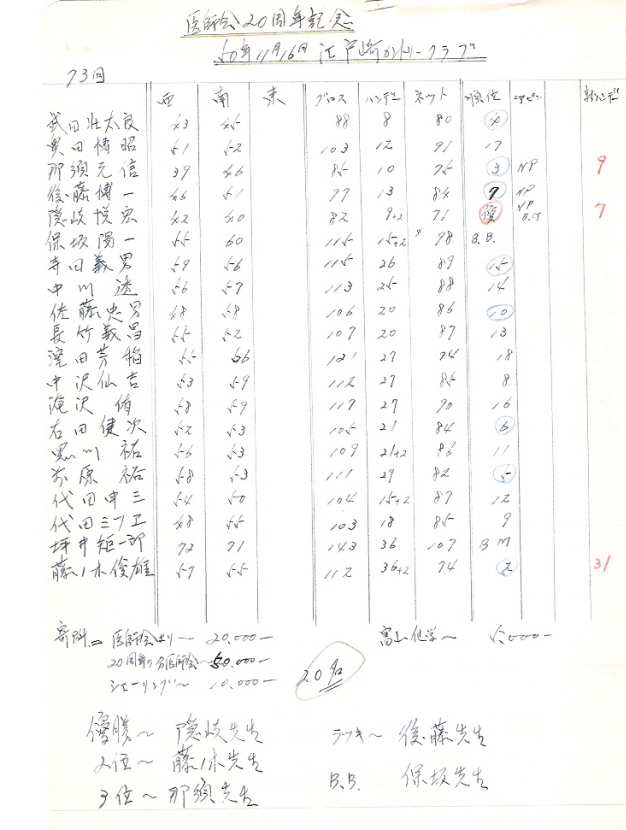 医師会20周年記念
50年11月16日 江戸崎カントリークラブ
73回
西 南 東 グロス ハンデー ネット 順位 新ハンデー
武田壮太良 43 45 88 8 80 4
奥田博昭 51 52 103 12 91 17
那須元信 39 46 85 10 75 3 NP 9
後藤博一 46 51 97 13 84 7 NP
隠岐悦宏 42 40 82 9+2 71 優 NP B.G 7
保坂陽一 55 60 115 15+2 98 B.B.
寺田義男 59 56 115 26 89 15
中川 透 56 57 113 25 88 14
佐藤忠男 48 58 106 20 86 10
長竹義昌 55 52 107 20 87 13
田芳稲 55 66 121 27 94 18
中沢仙吉 53 59 112 27 85 8
滝沢 侑 58 59 117 27 90 16
右田健次 52 53 105 21 84 6
黒川 祐 56 53 109 21+2 86 11
原 裕 58 53 111 29 82 5
代田申三 54 50 104 15+2 87 12
代田ミフエ 48 55 103 18 85 9
坪井矩一郎 72 71 143 36 107 B M
藤ノ木俊雄 57 55 112 36+2 74 2 31
寄附 = 医師会より〜 20,000ー 富山化学〜 5,000ー
20周年の分医師会〜50,000ー
シェーリング〜 10,000ー 20名
優勝〜 隠岐先生 ラッキ〜 後藤先生
2位〜 藤ノ木先生 B.B. 保坂先生
3位〜 那須先生